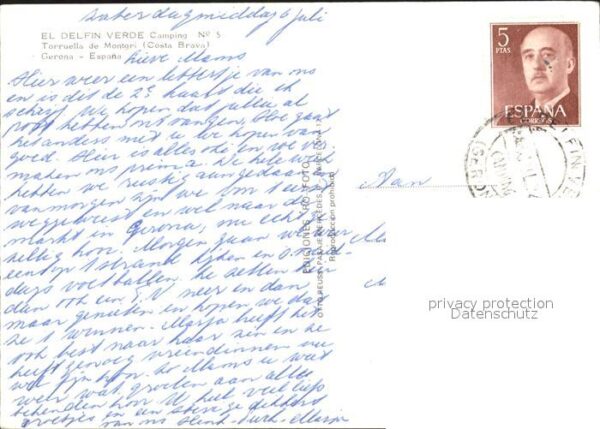 zaterdagmiddag 6 juli
EL DELFIN VERDE Camping Nº 5
Torruella de Montgri (Costa Brava)
Gerona - España
lieve Mams
Hier weer een lettertje van ons
en is dit de 2e kaart die ik
schrijf We hopen dat jullie al
post hebben ontvangen, Hoe gaat
het anders met u we hopen van
goed. Hier is alles oke en we ver
maken ons prima. De hele week
hebben we rustig aangedaan
van morgen zijn we om 1 uur
weggeweest en wel naar de
markt in Gerona, nu echt ge
zellig hoor. Morgen gaan we weer
eens op 1 strand kijken en 's mid
dags voetballen. Ze zetten
dan ook een T.V neer en dan
maar genieten en hopen we dat
ze 1 winnen. Marja heeft het
ook best naar haar zin en ze
heeft genoeg vriendinnen
hoor. Zo Mams u weet
weer wat, groeten aan alle
bekenden hoor U het veel liefs
groetjes en een stevige
van ons Henk Marja
EDICIONES "PRO-FOTO"
BARCELONA
Reproducción prohibida
5
PTAS
ESPAÑA
CORREOS
Aan
privacy protection
Datenschutz